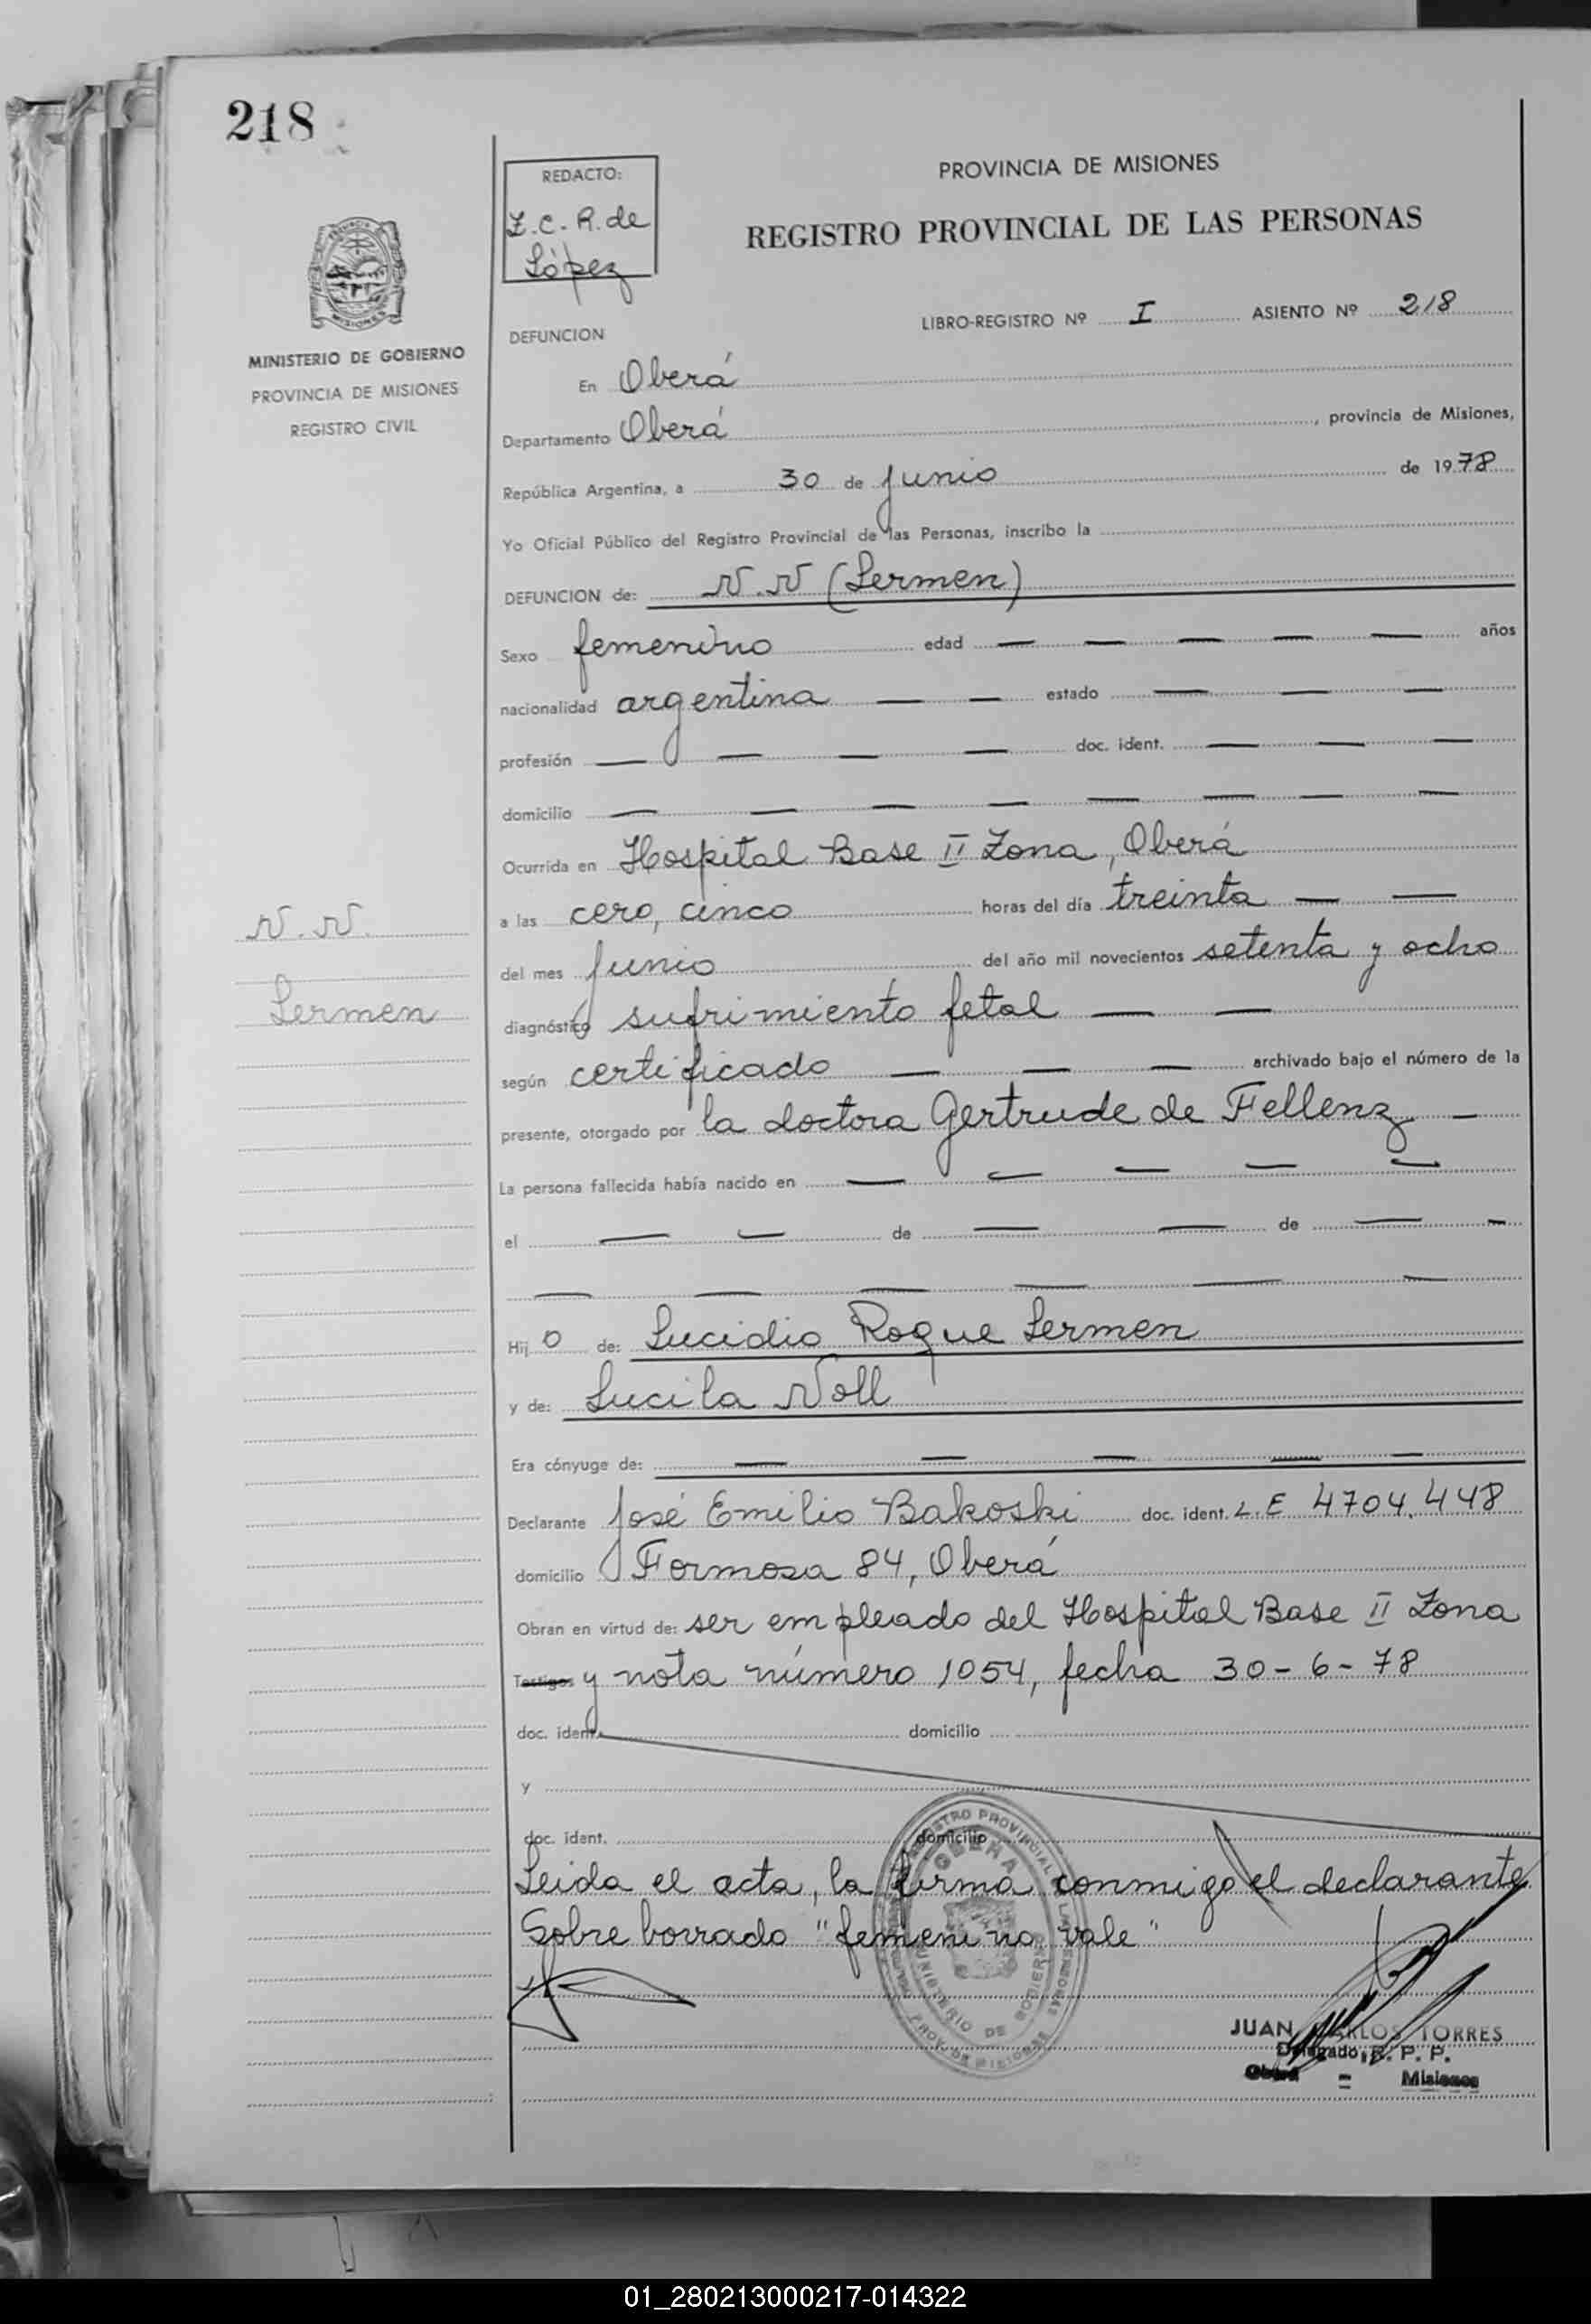 218
REDACTO:
Z.C.R. de
López
PROVINCIA DE MISIONES
REGISTRO PROVINCIAL DE LAS PERSONAS
MISIONES
MINISTERIO DE GOBIERNO
PROVINCIA DE MISIONES
REGISTRO CIVIL
LIBRO-REGISTRO Nº I ASIENTO Nº 218
DEFUNCION
En Oberá
Departamento Oberá, provincia de Misiones,
República Argentina, a 30 de junio de 1978
Yo Oficial Público del Registro Provincial de las Personas, inscribo la
DEFUNCION de: N.N (Lermen)
Sexo femenino edad — — — — — años
nacionalidad argentina — — estado — — —
profesión — — — — doc. ident. — — —
domicilio — — — — — — — —
Ocurrida en Hospital Base II Zona, Oberá
N.N.
Lermen
a las cero, cinco horas del día treinta — —
del mes junio del año mil novecientos setenta y ocho
diagnóstico sufrimiento fetal — —
según certificado — — — archivado bajo el número de la
presente, otorgado por la doctora Gertrude de Fellenz —
La persona fallecida había nacido en — — — — —
el — — de — — de — —
— — — — — —
Hijo de: Lucidio Roque Lermen
y de: Lucila Noll
Era cónyuge de: — — — — —
Declarante José Emilio Bakoski doc. ident. L.E 4704.448
domicilio Formosa 84, Oberá
Obran en virtud de: ser empleado del Hospital Base II Zona
Testigos y nota número 1054, fecha 30-6-78
doc. ident. domicilio
y
doc. ident. domicilio
Leida el acta, la firma conmigo el declarante
Sobre borrado "femenino vale"
JUAN CARLOS TORRES
Delegado, R. P. P.
Oberá = Misiones
01_280213000217-014322